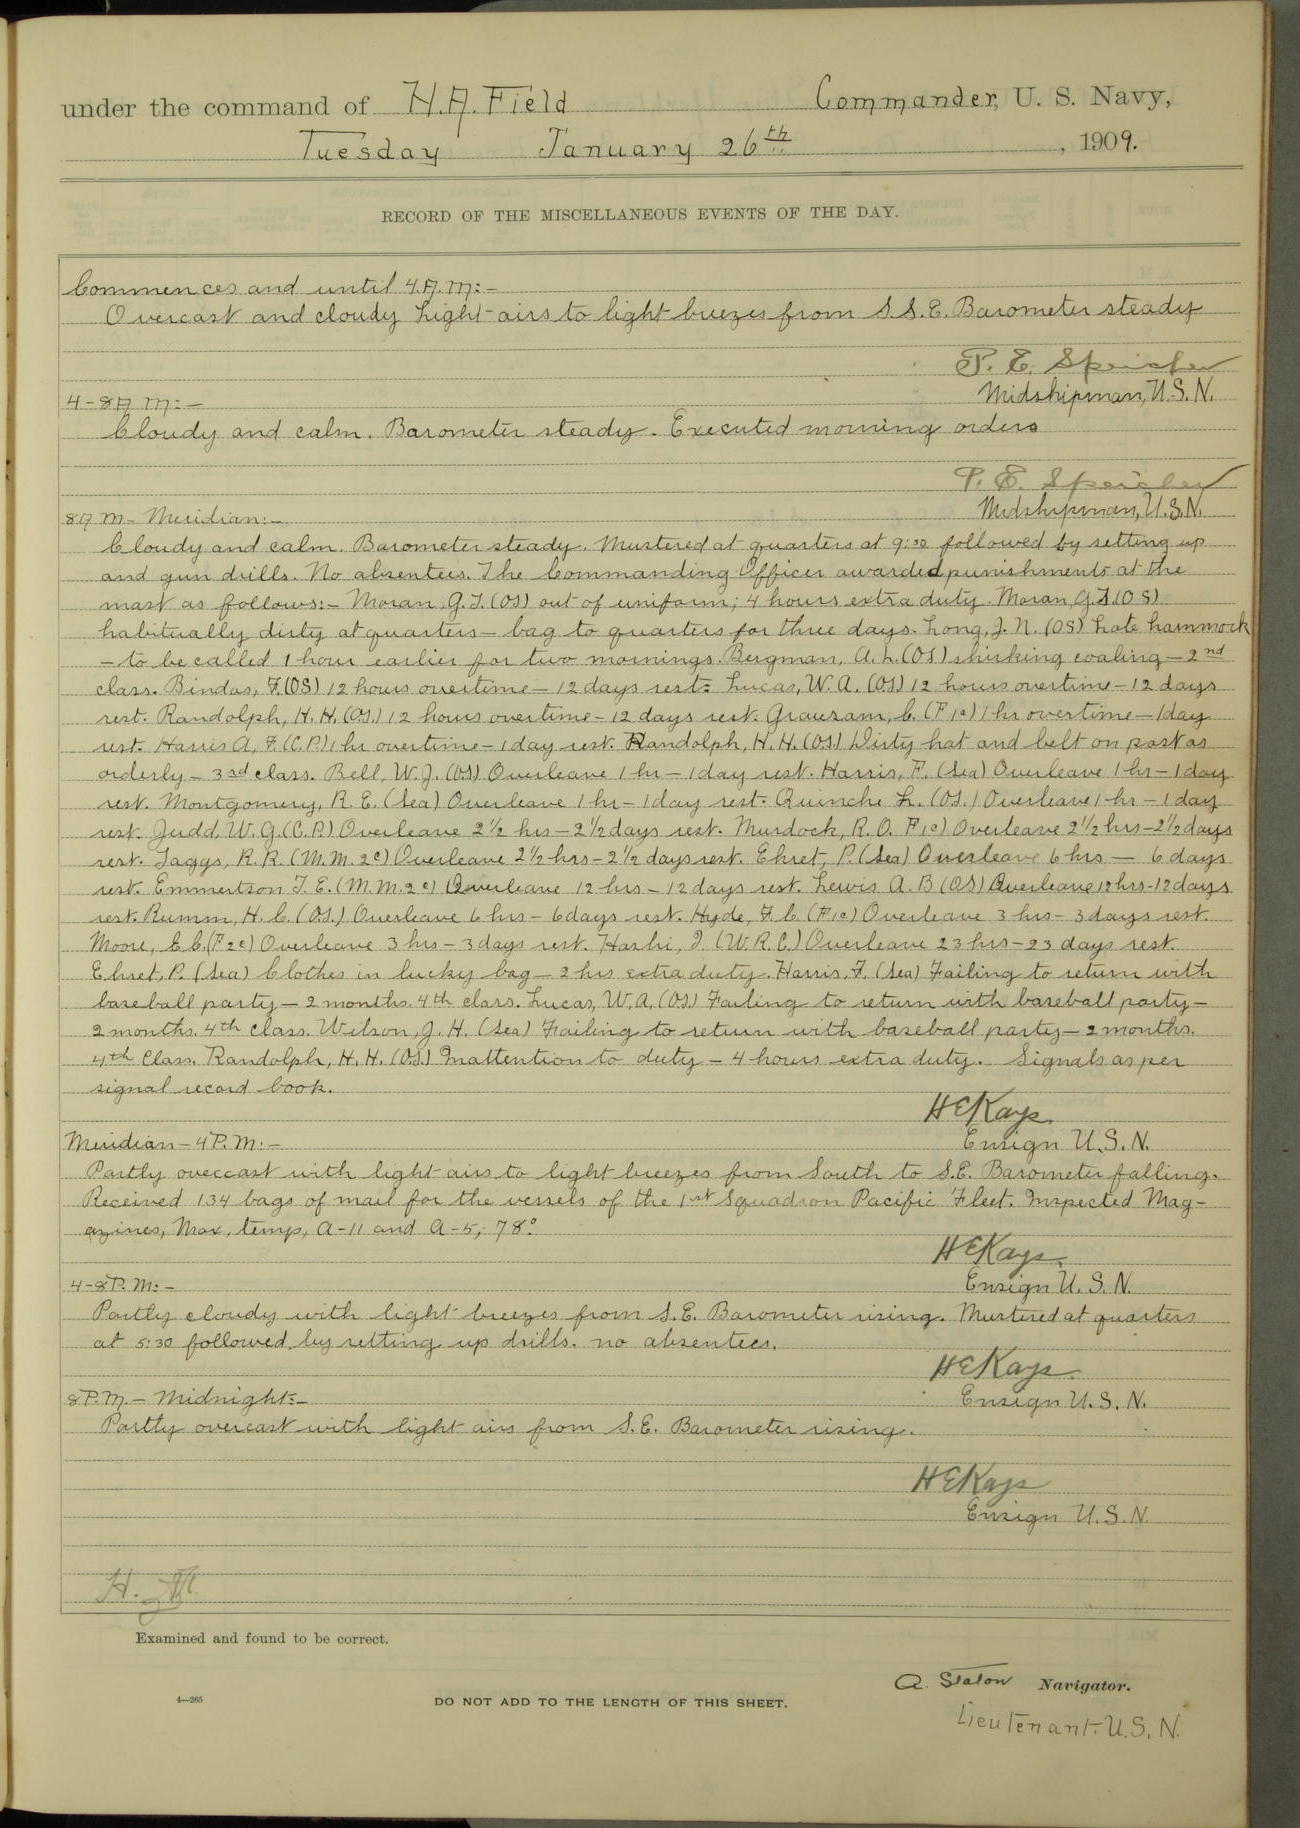 under the command of H.A. Field Commander, U. S. Navy,
Tuesday January 26th, 1909.
RECORD OF THE MISCELLANEOUS EVENTS OF THE DAY.
Commences and until 4.A.M:-
Overcast and cloudy Light airs to light breezes from S.S.E. Barometer steady
P. E. Speicher
Midshipman, U.S.N.
4-8A M:-
Cloudy and calm. Barometer steady. Executed morning orders
P. E. Speicher
Midshipman, U.S.N.
8A M- Meridian:-
Cloudy and calm. Barometer steady. Mustered at quarters at 9:30 followed by setting up
and gun drills. No absentees. The Commanding Officer awarded punishments at the
mast as follows:- Moran, G.T. (OS) out of uniform; 4 hours extra duty. Moran, G.T. (OS)
habitually dirty at quarters- bag to quarters for three days. Long, J. N. (OS) Late hammock
- to be called 1 hour earlier for two mornings. Bergman, A. L. (OS) shirking coaling- 2nd
class. Bindas, F. (OS) 12 hours overtime- 12 days rest. Lucas, W. A. (OS) 12 hours overtime- 12 days
rest. Randolph, H. H. (OS.) 12 hours overtime- 12 days rest. Grauzam, C. (F 1c) 1 hr overtime- 1 day
rest. Harris A, F. (C.P.) 1 hr overtime- 1 day rest. Randolph, H. H. (OS.) Dirty hat and belt on post as
orderly- 3rd class. Bell, W. J. (OS) Overleave 1 hr- 1 day rest. Harris, F. (Sea) Overleave 1 hr- 1 day
rest. Montgomery, R. E. (Sea) Overleave 1 hr- 1 day rest. Quinche L. (OS.) Overleave 1 hr- 1 day
rest. Judd, W. G. (C.P.) Overleave 2½ hrs- 2½ days rest. Murdock, R. O. F1c) Overleave 2½ hrs-2½ days
rest. Taggs, R. R. (M.M. 2c) Overleave 2½ hrs- 2½ days rest. Ehret, P. (Sea) Overleave 6 hrs- 6 days
rest. Emmertson T. E. (M.M. 2c) Overleave 12 hrs- 12 days rest. Lewis A. B (OS) Overleave 12 hrs-12 days
rest. Rumm, H. C. (OS.) Overleave 6 hrs- 6 days rest. Hyde, F. C. (F1c) Overleave 3 hrs- 3 days rest.
Moore, C. C. (F2c) Overleave 3 hrs- 3 days rest. Hashi, I. (W.R.C.) Overleave 23 hrs- 23 days rest.
Ehret, P. (Sea) Clothes in lucky bag- 2 hrs extra duty. Harris, F. (Sea) Failing to return with
baseball party- 2 months. 4th class. Lucas, W. A. (OS) Failing to return with baseball party-
2 months. 4th class. Wilson, J. H. (Sea) Failing to return with baseball party- 2 months.
4th Class. Randolph, H. H. (OS.) Inattention to duty- 4 hours extra duty. Signals as per
signal record book.
H E Kays.
Meridian- 4 P. M:-
Ensign U. S. N.
Partly overcast with light airs to light breezes from South to S.E. Barometer falling.
Received 134 bags of mail for the vessels of the 1st Squadron Pacific Fleet. Inspected Mag-
azines, Max, temp, A-11 and A-5, 78°.
H E Kays.
4-8P. M:-
Ensign U. S. N.
Partly cloudy with light breezes from S.E. Barometer rising. Mustered at quarters
at 5:30 followed by setting up drills. no absentees.
H E Kays.
8 P.M.- Midnight:-
Ensign U. S. N.
Partly overcast with light airs from S.E. Barometer rising.
H E Kays
Ensign U. S. N.
Examined and found to be correct.
A. Staton Navigator.
4—265
DO NOT ADD TO THE LENGTH OF THIS SHEET.
Lieutenant. U. S. N.